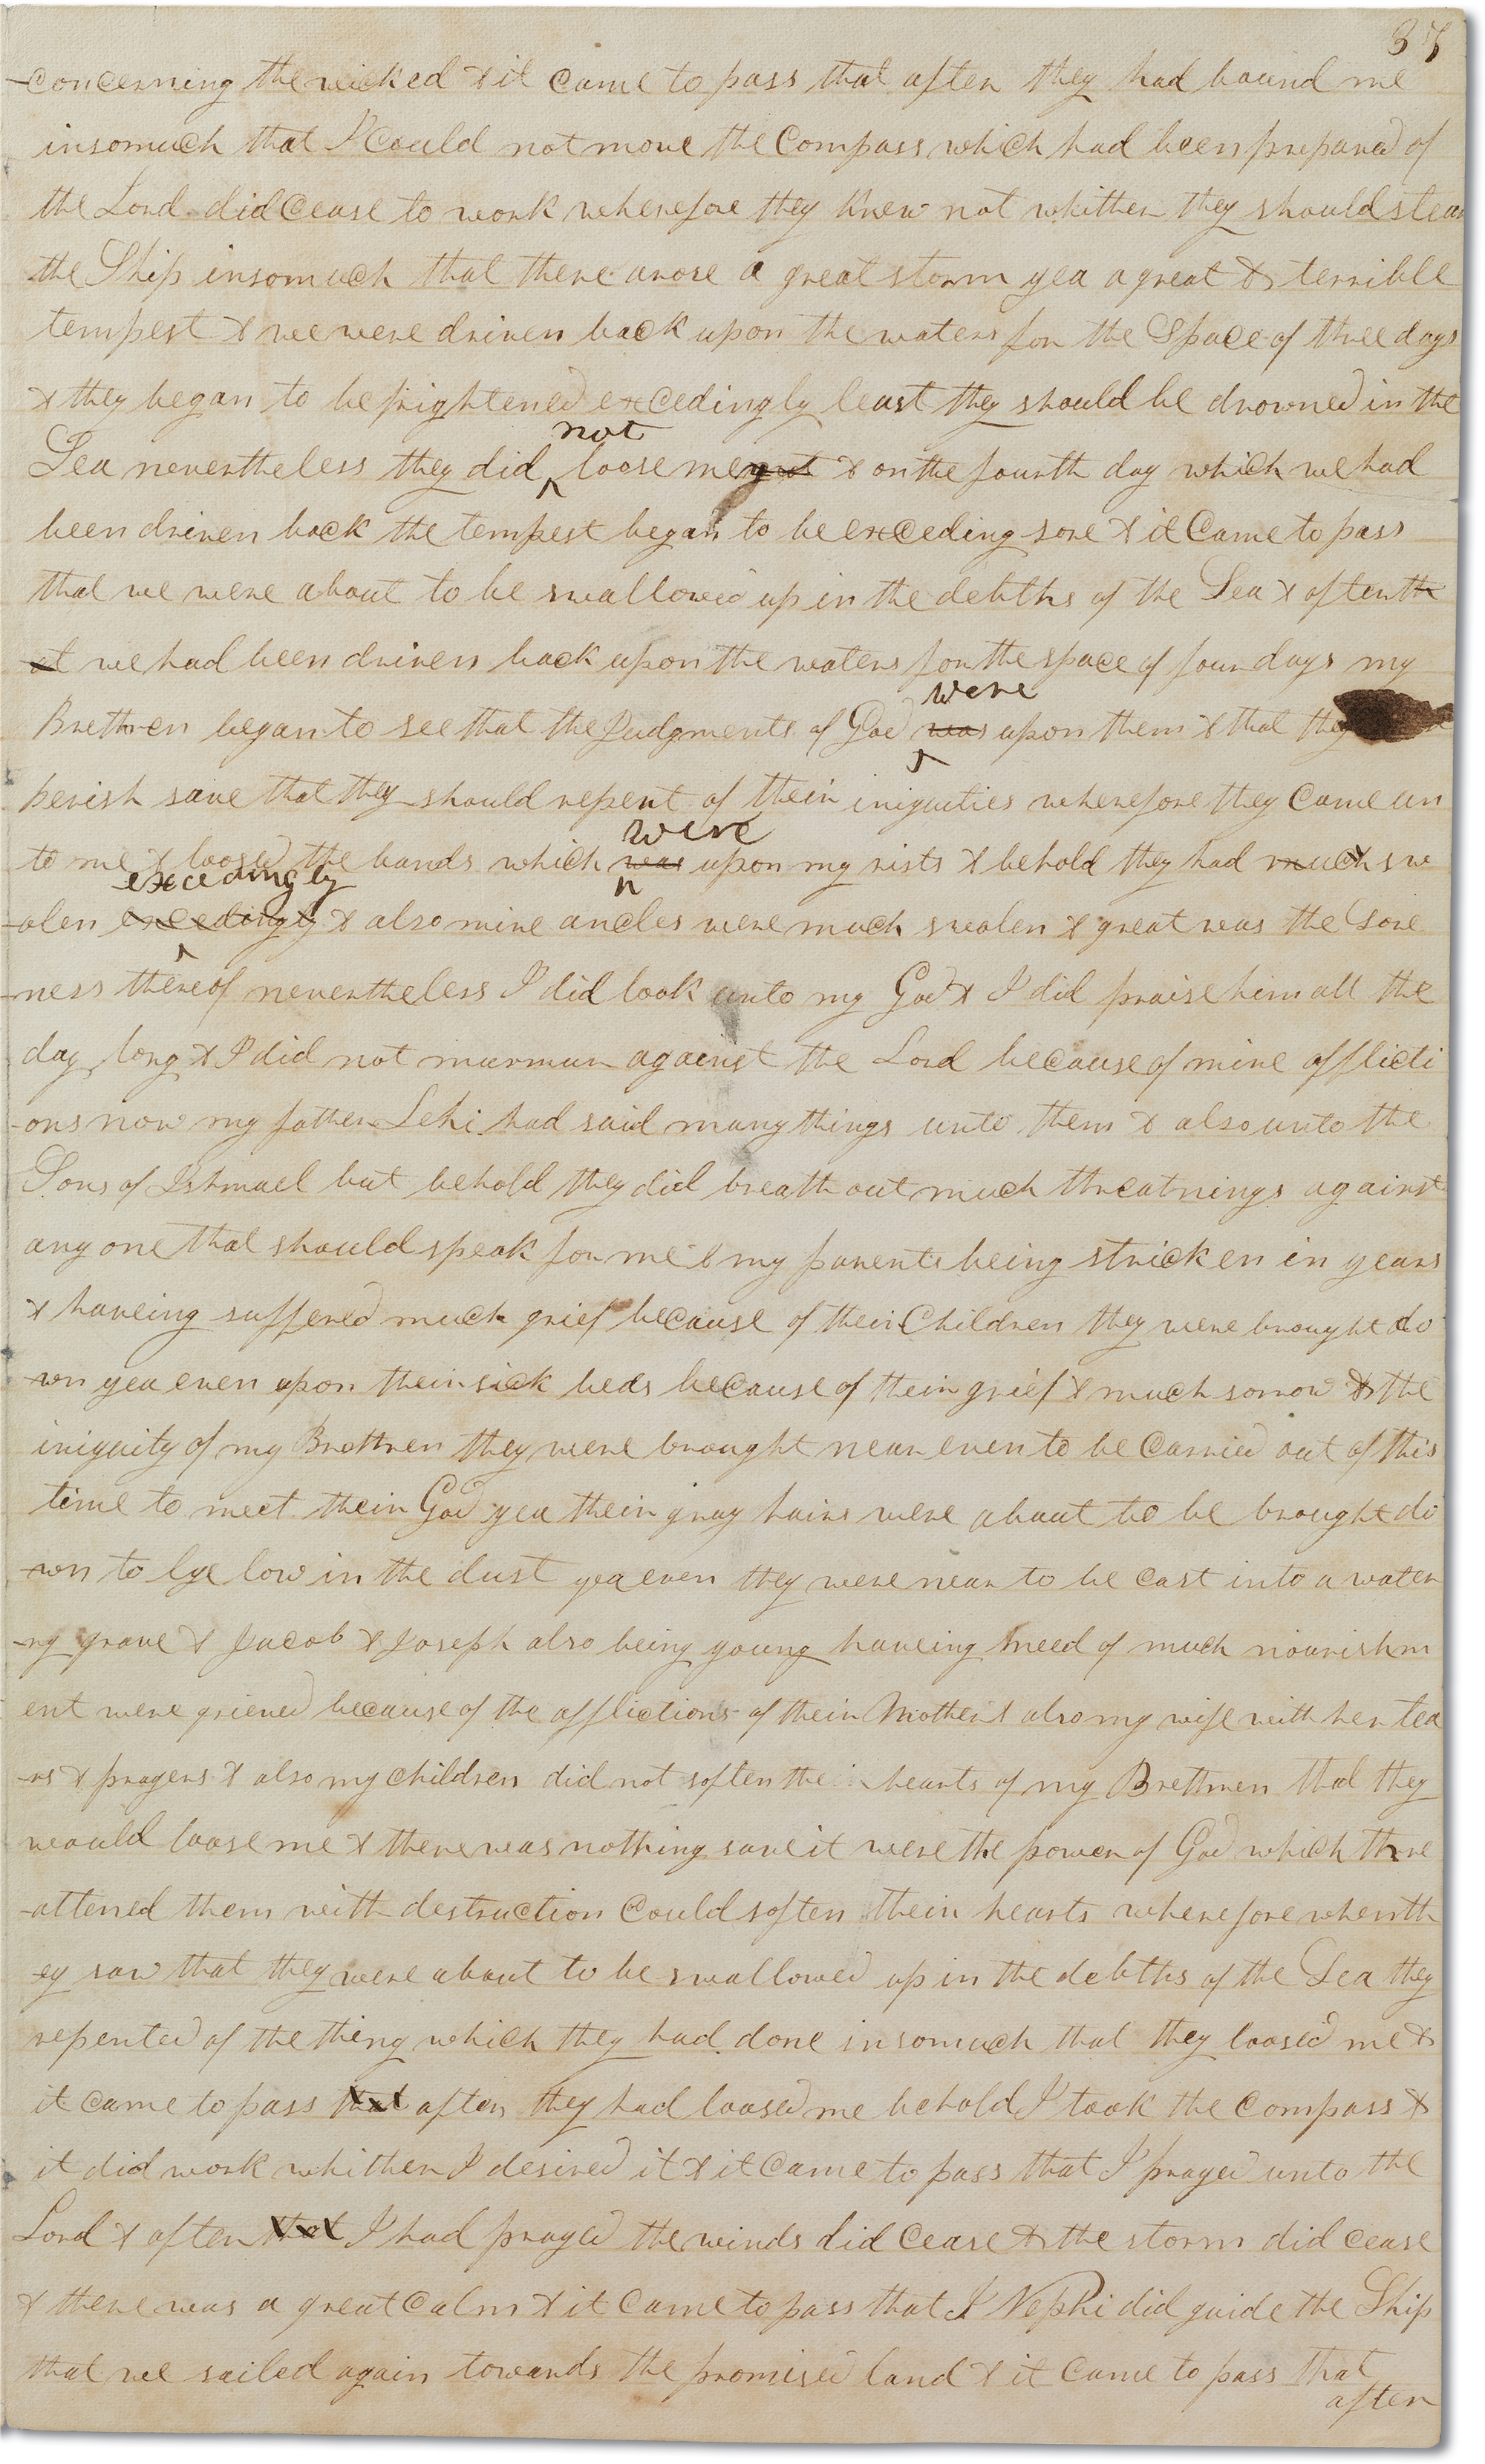 37
-concerning the wicked & it came to pass that after they had bound me
insomuch that I could not move the compass which had been prepared of
the Lord did cease to work wherefore they knew not whither they should stear
the Ship insomuch that there arose a great storm yea a great & terrible
tempest & we were driven back upon the waters for the Space of three days
& they began to be frightened excedingly least they should be drowned in the
not
Sea nevertheless they did loose me not & on the fourth day which we had
been driven back the tempest began to be exceding sore & it came to pass
that we were about to be swallowed up in the debths of the Sea & after th
at we had been driven back upon the waters for the space of four days my
were
Brethren began to see that the Judgments of God was upon them & that they
perish save that they should repent of their iniquities wherefore they came un
were
to me & loosed the bands which was upon my rists & behold they had much sw
excedingly
-olen excedingly & also mine ancles were much swolen & great was the Sore
-ness thereof nevertheless I did look unto my God & I did praise him all the
day long & I did not murmur against the Lord because of mine afflicti
-ons now my father Lehi had said many things unto them & also unto the
Sons of Ishmael but behold they did breath out much threatnings against
any one that should speak for me & my parents being stricken in years
& haveing suffered much grief because of their Children they were brought do
-wn yea even upon their sick beds because of their grief & much sorrow & the
iniquity of my Brethren they were brought near even to be carried out of this
time to meet their God yea their gray hairs were about to be brought do
-wn to lye low in the dust yea even they were near to be cast into a water
-ry grave & Jacob & Joseph also being young haveing need of much nourishm
ent were grieved because of the afflictions of their Mother & also my wife with her tea
-rs & prayers & also my children did not soften the hearts of my Brethren that they
would loose me & there was nothing save it were the power of God which thre
-attened them with destruction could soften their hearts wherefore when th
-ey saw that they were about to be swallowed up in the debths of the Sea they
repented of the thing which they had done insomuch that they loosed me &
it came to pass that after they had loosed me behold I took the compass &
it did work whither I desired it & it came to pass that I prayed unto the
Lord & after that I had prayed the winds did cease & the storm did cease
& there was a great calm & it came to pass that I Nephi did guide the Ship
that we sailed again towards the promised land & it came to pass that
after